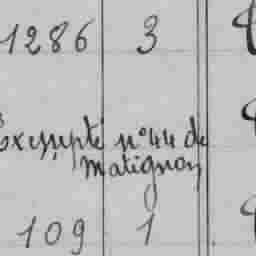 1286 3
Exempté n°44 de
Matignon
109 1